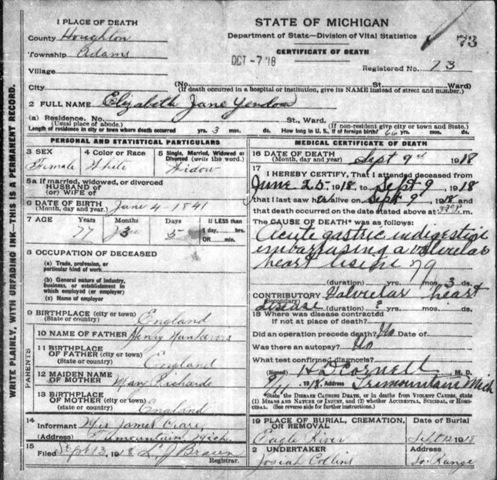 1 PLACE OF DEATH
STATE OF MICHIGAN
73
County Houghton
Department of State—Division of Vital Statistics
Township Adams
CERTIFICATE OF DEATH
OCT -7 '18
Village
Registered No. 73
City (No. St., Ward)
(If death occurred in a hospital or institution, give its NAME instead of street and number.)
2 FULL NAME Elizabeth Jane Yendow
(a) Residence. No. St., Ward.
(Usual place of abode.) (If non-resident give city or town and State.)
Length of residence in city or town where death occurred yrs. 3 mos. ds. How long in U. S., if of foreign birth? yrs. mos. ds.
PERSONAL AND STATISTICAL PARTICULARS
MEDICAL CERTIFICATE OF DEATH
3 SEX
Female
4 Color or Race
White
5 Single, Married, Widowed or Divorced (write the word)
Widow
5a If married, widowed, or divorced
HUSBAND of
(or) WIFE of
6 DATE OF BIRTH
(Month, day and year) June 4 - 1841
7 AGE
77 3 5
If LESS than
1 day, hrs.
OR min.
8 OCCUPATION OF DECEASED
(a) Trade, profession, or particular kind of work
(b) General nature of industry, business, or establishment in which employed (or employer)
(c) Name of employer
9 BIRTHPLACE (city or town)
(State or country) England
10 NAME OF FATHER
Henry
11 BIRTHPLACE OF FATHER (city or town)
(State or country) England
12 MAIDEN NAME OF MOTHER
Mary Richards
13 BIRTHPLACE OF MOTHER (city or town)
(State or country) England
PARENTS
14
Informant Mrs James
(Address) Mich
15
Filed Sept 13 1918 L J Braun
Registrar.
16 DATE OF DEATH
(Month, day and year) Sept 9th 1918
17
I HEREBY CERTIFY, That I attended deceased from
June 25, 1918 to Sept 9, 1918
that I last saw h alive on Sept 9, 18
and that death occurred on the date stated above at
The CAUSE OF DEATH* was as follows:
Acute gastric indigestion
embarrasing a valvular
heart lesion 79
(duration) yrs. mos. 3 ds.
CONTRIBUTORY Valvular heart
(Secondary) disease (duration) yrs. mos. ds.
18 Where was disease contracted
if not at place of death?
Did an operation precede death? No Date of
Was there an autopsy? No
What test confirmed diagnosis?
(Signed) W D Cornell M. D.
9/11, 1918. Address Tremountain Mich
*State the Disease Causing Death, or in deaths from Violent Causes, state (1) Means and Nature of Injury, and (2) whether Accidental, Suicidal, or Homicidal. (See reverse side for further instructions).
19 PLACE OF BURIAL, CREMATION, OR REMOVAL
Eagle River
Date of Burial
Sept 12 1918
2 UNDERTAKER
Josiah Collins
Address
So Range
WRITE PLAINLY, WITH UNFADING INK—THIS IS A PERMANENT RECORD.